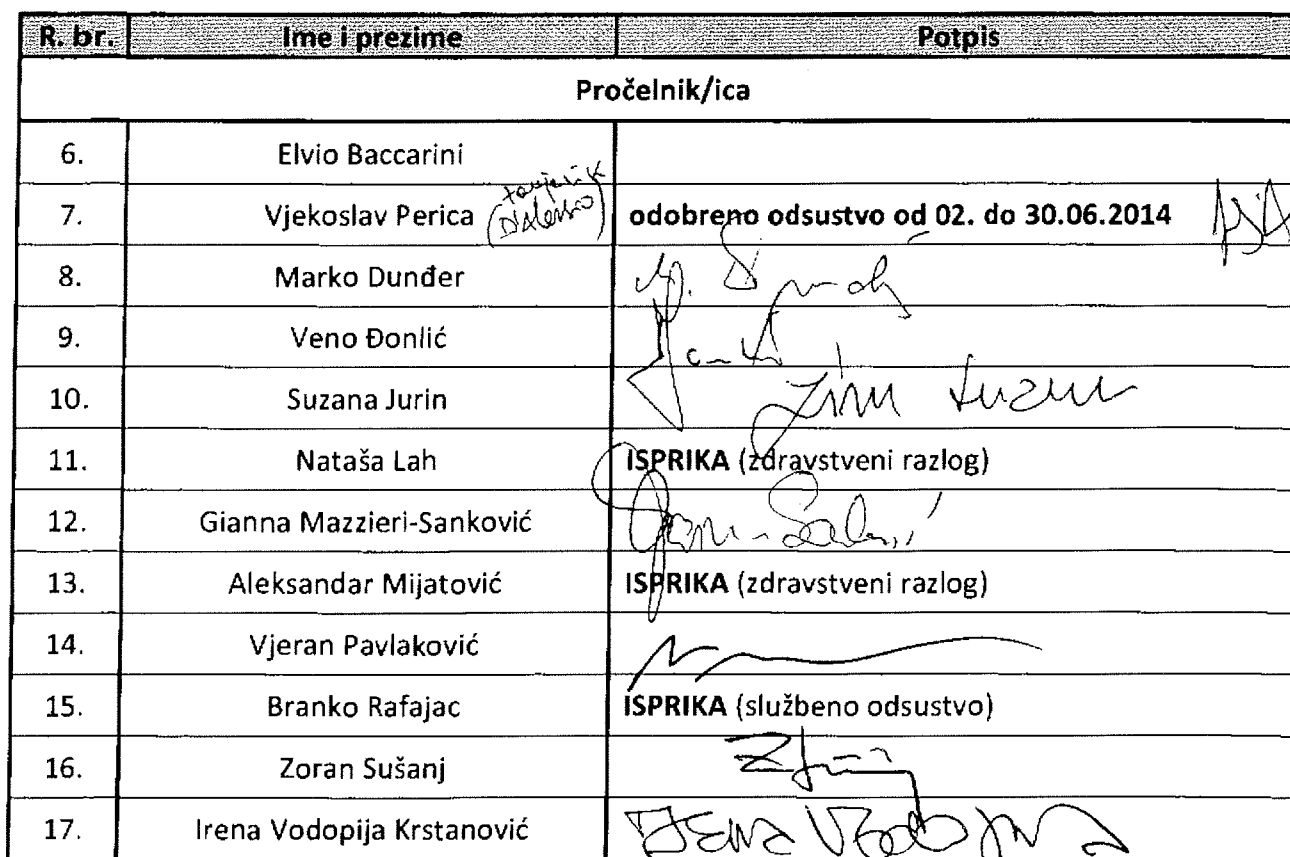 R. br. Ime i prezime Potpis
Pročelnik/ica
6. Elvio Baccarini
7. Vjekoslav Perica odobreno odsustvo od 02. do 30.06.2014
8. Marko Dunđer
9. Veno Đonlić
10. Suzana Jurin
11. Nataša Lah ISPRIKA (zdravstveni razlog)
12. Gianna Mazzieri-Sanković
13. Aleksandar Mijatović ISPRIKA (zdravstveni razlog)
14. Vjeran Pavlaković
15. Branko Rafajac ISPRIKA (službeno odsustvo)
16. Zoran Sušanj
17. Irena Vodopija Krstanović